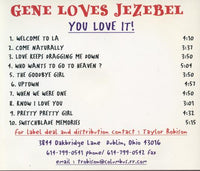 GENE LOVES JEZEBEL
YOU LOVE IT!
1. WELCOME TO LA 4:30
2. COME NATURALLY 3:37
3. LOVE KEEPS DRAGGING ME DOWN 3:50
4. WHO WANTS TO GO TO HEAVEN ? 5:04
5. THE GOODBYE GIRL 3:50
6. UPTOWN 4:57
7. WHEN WE WERE ONE 4:50
8. KNOW I LOVE YOU 3:03
9. PRETTY PRETTY GIRL 4:32
10. SWITCHBLADE MEMORIES 5:15
For label deal and distribution contact : Taylor Robison
3844 Oakbridge Lane Dublin, Ohio 43016
614-799-0541 phone/ 614-799-0542 fax
email : trobison@columbus.rr.com